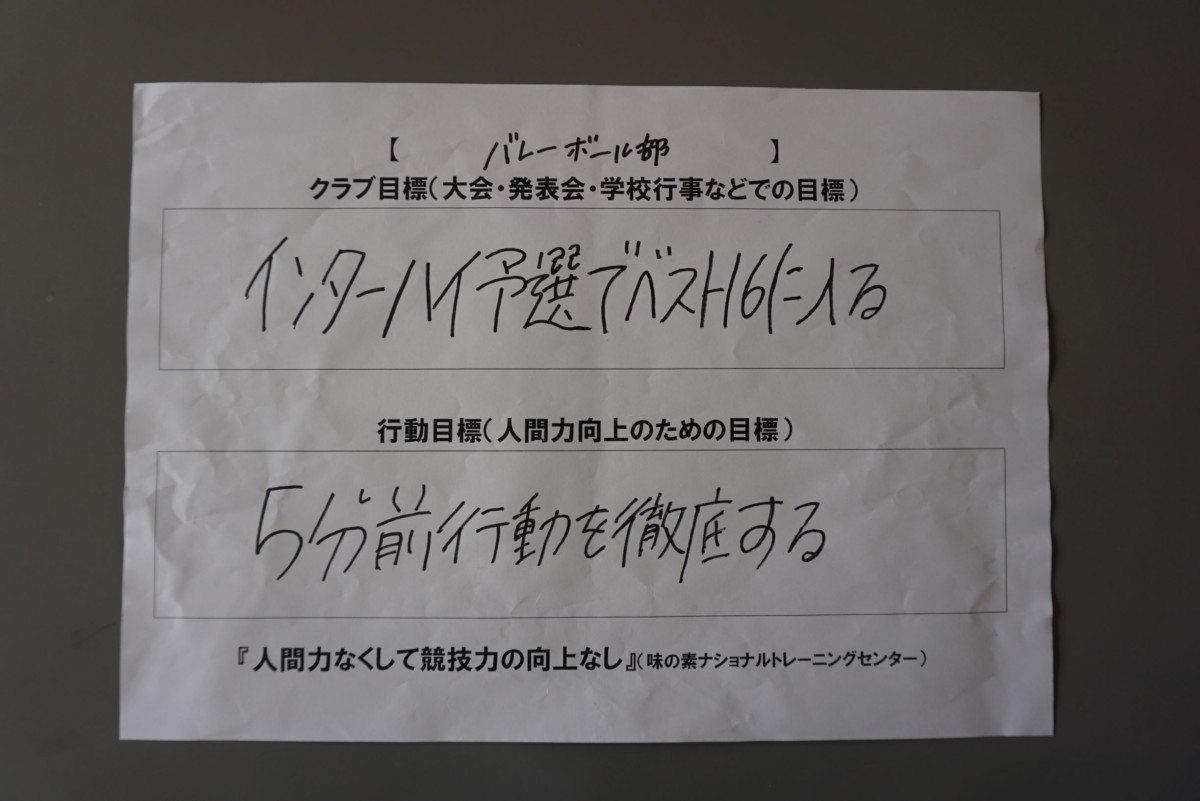 【 バレーボール部 】
クラブ目標(大会・発表会・学校行事などでの目標)
インターハイ予選でベスト16に入る
行動目標(人間力向上のための目標)
5分前行動を徹底する
『人間力なくして競技力の向上なし』(味の素ナショナルトレーニングセンター)